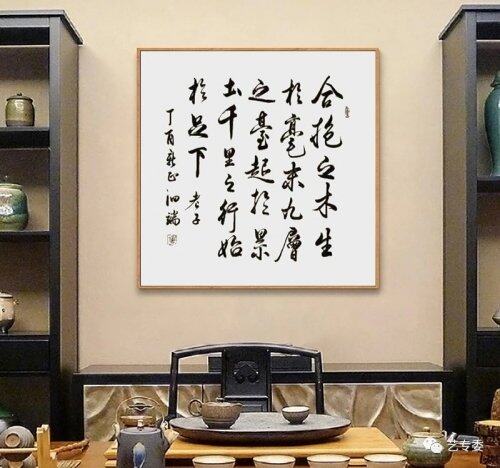 合抱之木生
於毫末九層
之臺起於累
土千里之行始
於足下 老子
丁酉
艺专委